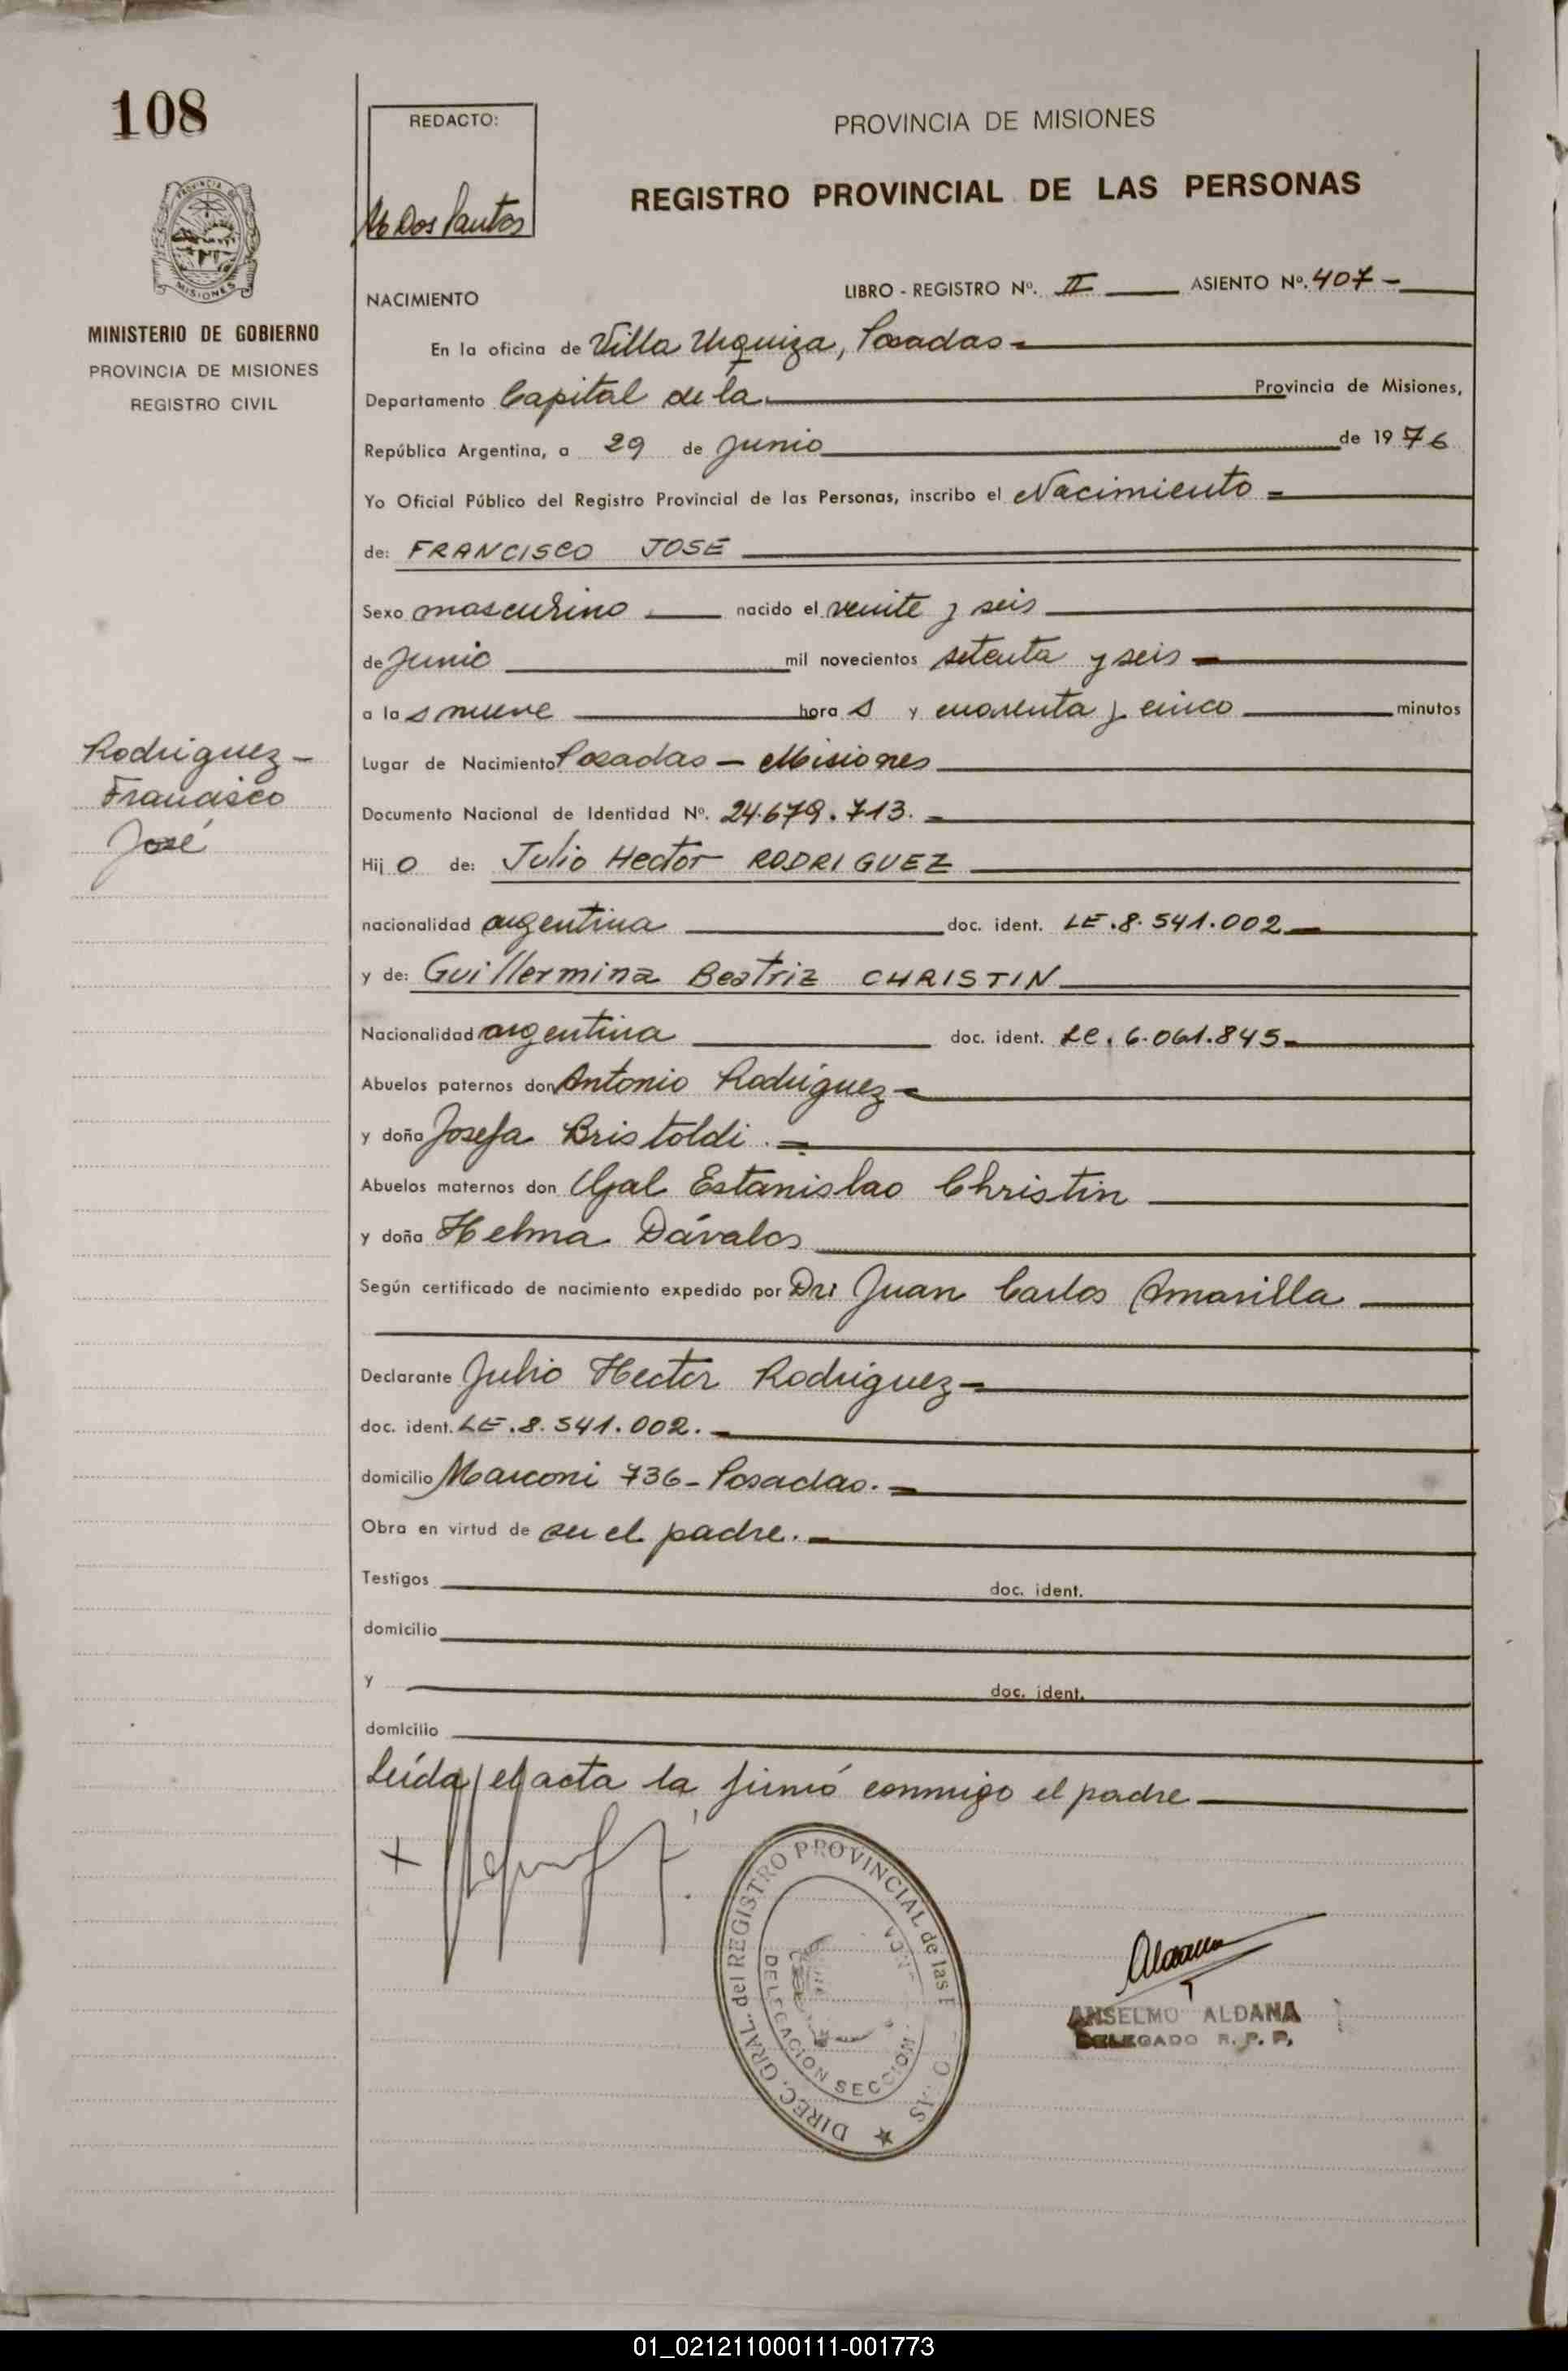 108
REDACTO:
Dos Santos
PROVINCIA DE MISIONES
REGISTRO PROVINCIAL DE LAS PERSONAS
PROVINCIA DE
MISIONES
MINISTERIO DE GOBIERNO
PROVINCIA DE MISIONES
REGISTRO CIVIL
NACIMIENTO LIBRO - REGISTRO Nº. II ASIENTO Nº. 407 -
En la oficina de Villa Urquiza, Posadas -
Departamento Capital de la Provincia de Misiones,
República Argentina, a 29 de Junio de 1976
Yo Oficial Público del Registro Provincial de las Personas, inscribo el Nacimiento =
de: FRANCISCO JOSÉ
Sexo masculino nacido el veinte y seis
de Junio mil novecientos setenta y seis -
a las nueve horas y cuarenta y cinco minutos
Lugar de Nacimiento Posadas - Misiones
Rodriguez -
Francisco
José
Documento Nacional de Identidad Nº. 24.679.713. -
Hijo de: Julio Hector RODRIGUEZ
nacionalidad argentina doc. ident. LE.8.541.002 -
y de: Guillermina Beatriz CHRISTIN
Nacionalidad argentina doc. ident. LC. 6.061.845 -
Abuelos paternos don Antonio Rodriguez -
y doña Josefa Bristoldi. =
Abuelos maternos don Estanislao Christin
y doña Helma Dávalos
Según certificado de nacimiento expedido por Dr: Juan Carlos Amarilla
Declarante Julio Hector Rodriguez -
doc. ident. LE.8.541.002. -
domicilio Marconi 736 - Posadas. =
Obra en virtud de ser el padre. -
Testigos doc. ident.
domicilio
y doc. ident.
domicilio
Leída el acta la firmó conmigo el padre
DIREC. GRAL. del REGISTRO PROVINCIAL de las
DELEGACION SECCION
Aldana
ANSELMO ALDANA
DELEGADO R. P. P.
01_021211000111-001773